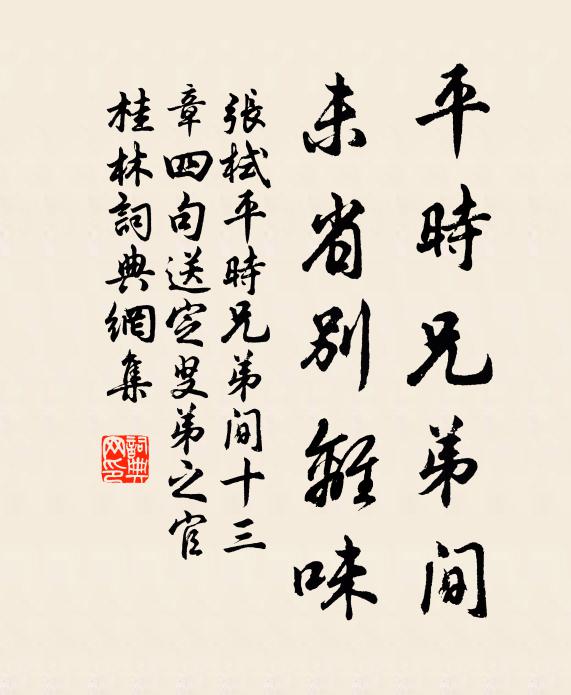 平時兄弟間
未省別離味
張栻平時兄弟間十三
章四句送定叟弟之官
桂林詞典網集
詞典网印